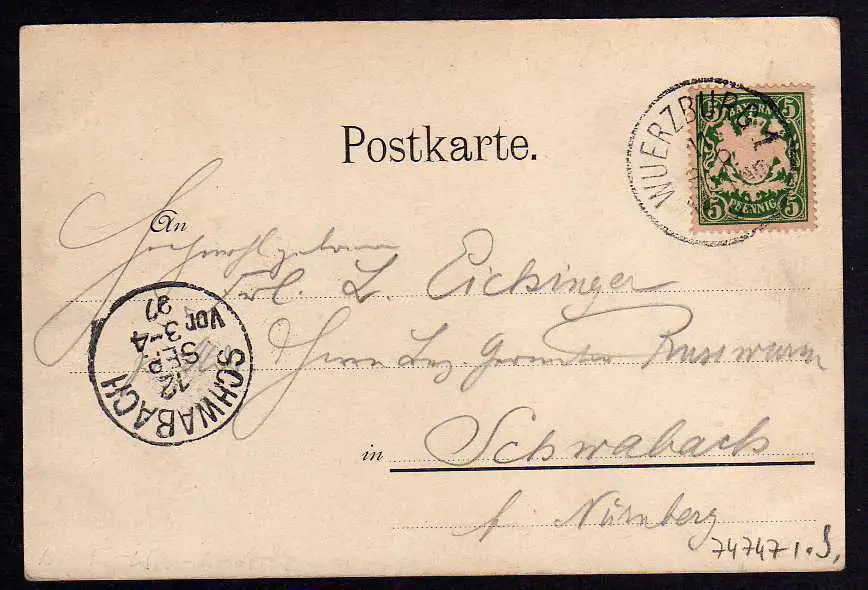 Postkarte.
WUERZBURG 1
BAYERN
5 5
5 5
PFENNIG
An
Hochwohlgeboren
Frl. L. Eichinger
Herrn Bez.
in Schwabach
b. Nürnberg
SCHWABACH
12
SEP.
3-4
Vor.
97
74747 I.S.